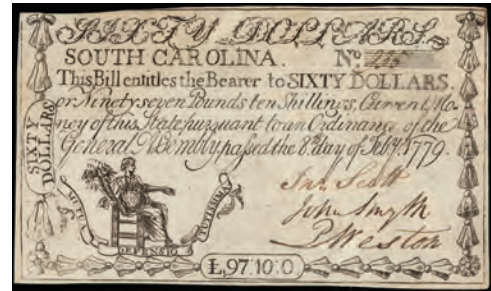 SIXTY DOLLARS.
SOUTH CAROLINA. No.
This Bill entitles the Bearer to SIXTY DOLLARS.
or Ninety seven Pounds ten Shillings, Current Mo-
ney of this State pursuant to an Ordinance of the
General Assembly passed the 8th. day of Feby. 1779.
SIXTY
DOLLARS
DEFENSIO
Jno. Scott
John Smyth
P Weston
£,97:10:0